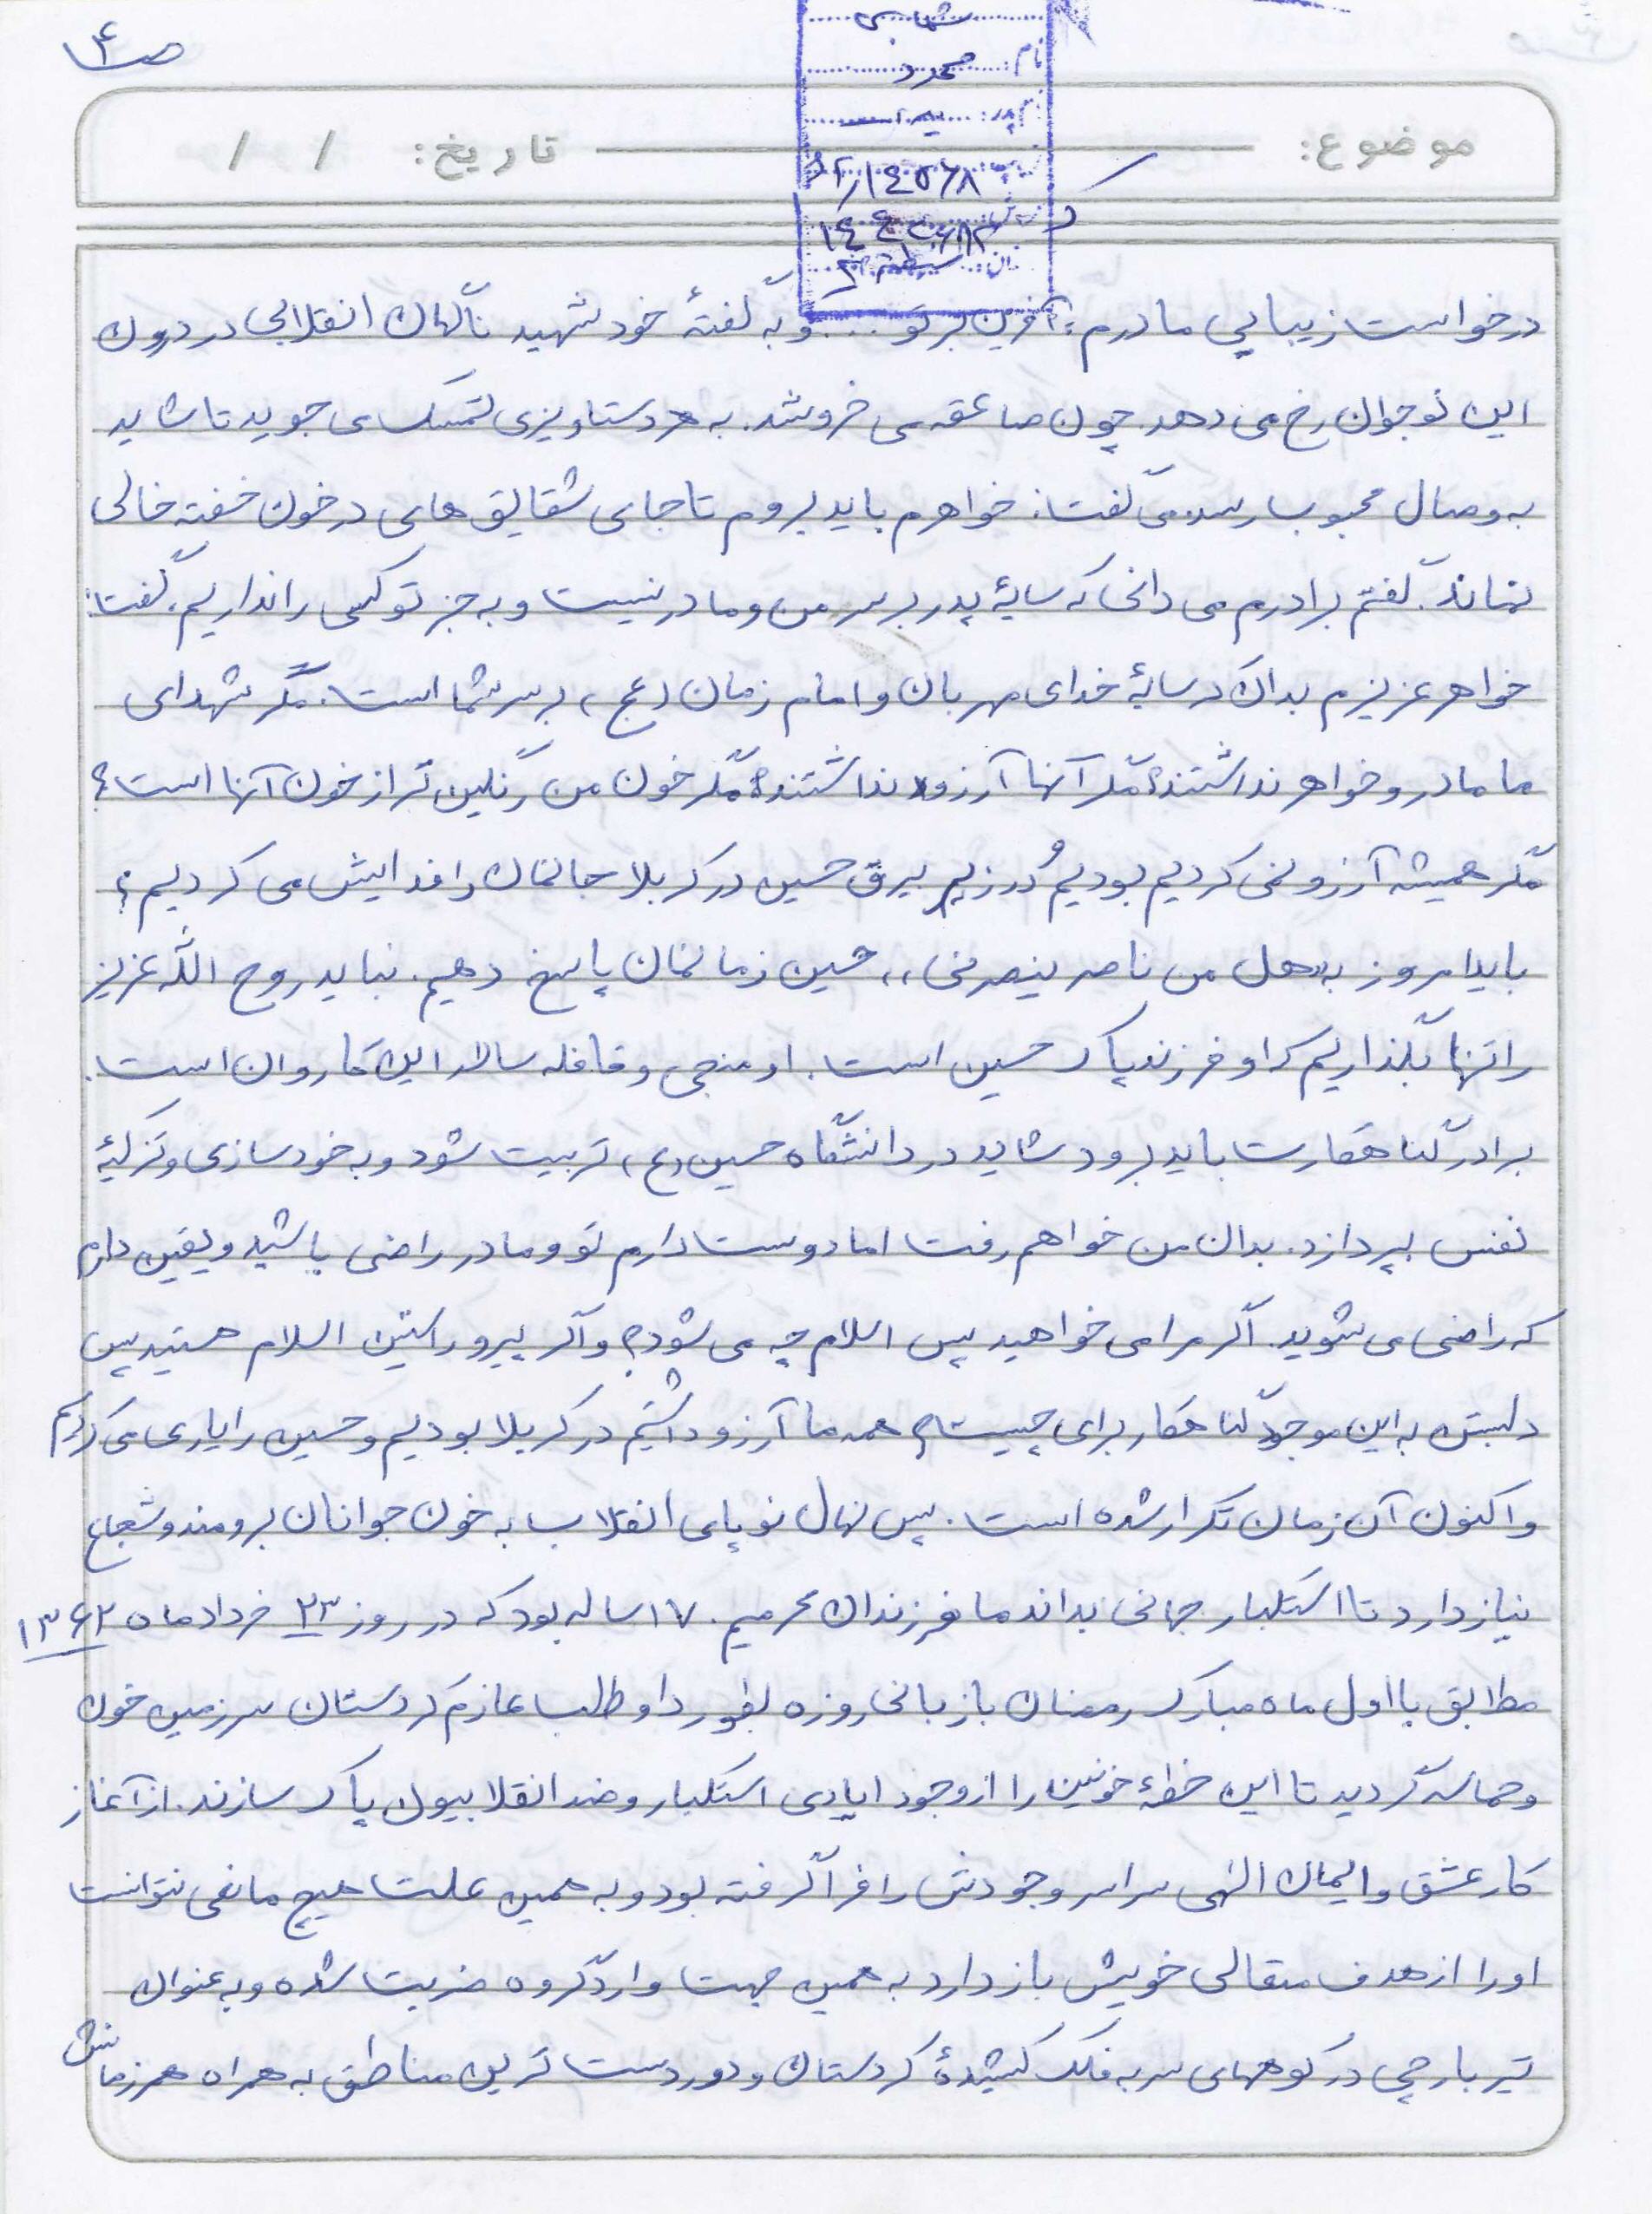 ص ۴
شهابی
نام: محمود
موضوع:
تاریخ: / /
درخواست زیبایی مادرم، آفرین بر تو... و به گفتهٔ خود شهید ناگهان انقلابی در درون
این نوجوان رخ می دهد. چون صاعقه می خروشد. به هر دستاویزی تمسک می جوید تا شاید
به وصال محبوب رسد. می گفت: خواهرم باید بروم تا جای شقایق های در خون خفته خالی
نماند. گفتم برادرم می دانی که سایهٔ پدر بر سر من و مادر نیست و به جز تو کسی را نداریم، گفت:
خواهر عزیزم بدان که سایهٔ خدای مهربان و امام زمان (عج) بر سر شما است. مگر شهدای
ما مادر و خواهر نداشتند؟ مگر آنها آرزو نداشتند؟ مگر خون من رنگین تر از خون آنها است؟
مگر همیشه آرزو نمی کردیم بودیم و در زیر بیرق حسین در کربلا جانمان را فدایش می کردیم؟
باید امروز به «هل من ناصر ینصرنی» حسین زمانمان پاسخ دهیم. نباید روح الله عزیز
را تنها بگذاریم که او فرزند پاک حسین است. او منجی و قافله سالار این کاروان است.
برادر گناهکارت باید برود شاید در دانشگاه حسین (ع) تربیت شود و به خودسازی و تزکیهٔ
نفس بپردازد. بدان من خواهم رفت اما دوست دارم تو و مادر راضی باشید و یقین دارم
که راضی می شوید. اگر مرا می خواهید پس اسلام چه می شود؟ و اگر پیرو راستین اسلام هستید پس
دلبستن به این موجود گناهکار برای چیست؟ همه ما آرزو داشتیم در کربلا بودیم و حسین را یاری می کردیم
و اکنون آن زمان تکرار شده است. پس نهال نوپای انقلاب به خون جوانان برومند و شجاع
نیاز دارد تا استکبار جهانی بداند ما فرزندان محرمیم. ۱۷ ساله بود که در روز ۲۳ خرداد ماه ۱۳۶۲
مطابق با اول ماه مبارک رمضان با زبانی روزه بطور داوطلب عازم کردستان سرزمین خون
و حماسه گردید تا این خطهٔ خونین را از وجود ایادی استکبار و ضد انقلابیون پاک سازند. از آغاز
کار عشق و ایمان الهی سراسر وجودش را فرا گرفته بود و به همین علت هیچ مانعی نتوانست
او را از هدف متعالی خویش باز دارد به همین جهت وارد گروه ضربت شده و به عنوان
تیربارچی در کوههای سر به فلک کشیدهٔ کردستان و دور دست ترین مناطق به همراه همرزمانش